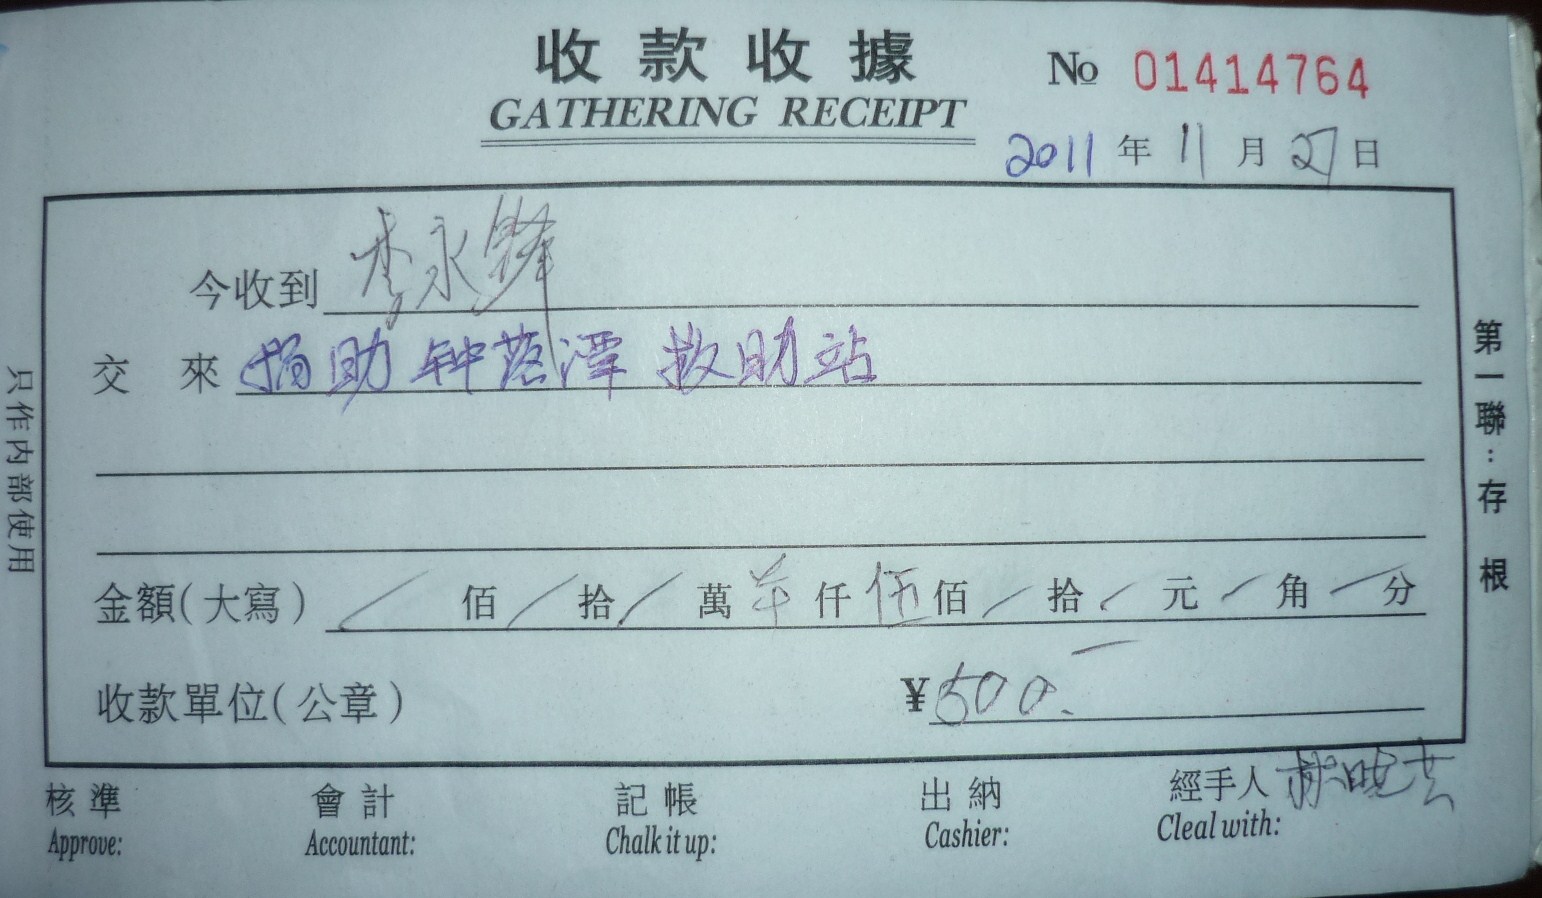 收款收據
GATHERING RECEIPT
No 01414764
2011 年 11 月 27 日
今收到 李永鋒
交 來 捐助 钟落潭 救助站
金額(大寫) / 佰 / 拾 / 萬 仟 伍 佰 / 拾 / 元 / 角 / 分
收款單位(公章)
¥500.
核準
Approve:
會計
Accountant:
記帳
Chalk it up:
出納
Cashier:
經手人
Cleal with:
只作内部使用
第一聯:存根